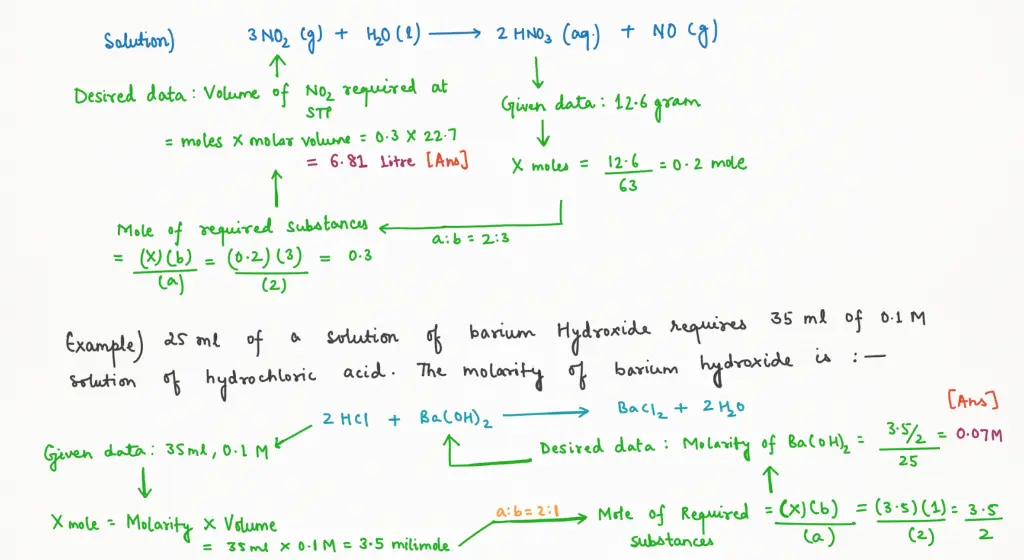 Solution) 3 NO₂ (g) + H₂O (l) ⟶ 2 HNO₃ (aq.) + NO (g)
Desired data : Volume of NO₂ required at STP
= moles X molar volume = 0.3 X 22.7
= 6.81 Litre [Ans]
Given data : 12.6 gram
X moles = 12.6/63 = 0.2 mole
a:b = 2:3
Mole of required substances
= (X)(b)/(a) = (0.2)(3)/(2) = 0.3
Example) 25 ml of a solution of barium Hydroxide requires 35 ml of 0.1 M
solution of hydrochloric acid. The molarity of barium hydroxide is :—
2 HCl + Ba(OH)₂ ⟶ BaCl₂ + 2 H₂O
Given data : 35ml, 0.1 M
X mole = Molarity X Volume
= 35ml X 0.1M = 3.5 milimole
a:b = 2:1
Mole of Required substances = (X)(b)/(a) = (3.5)(1)/(2) = 3.5/2
Desired data : Molarity of Ba(OH)₂ = 3.5/2/25 = 0.07M
[Ans]